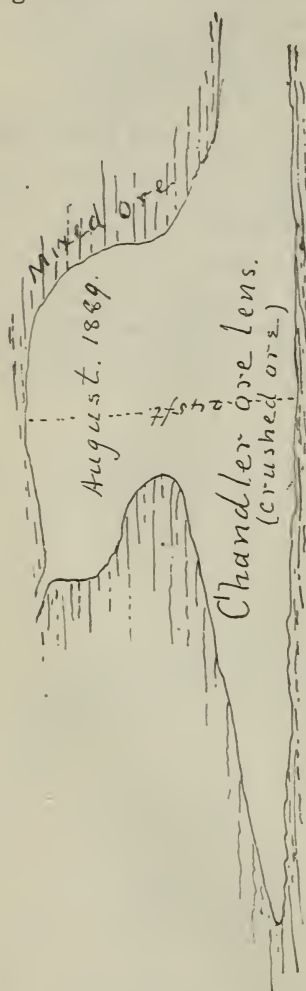 Mixed Ore
August. 1889.
245 ft.
Chandler ore lens.
(crushed ore.)